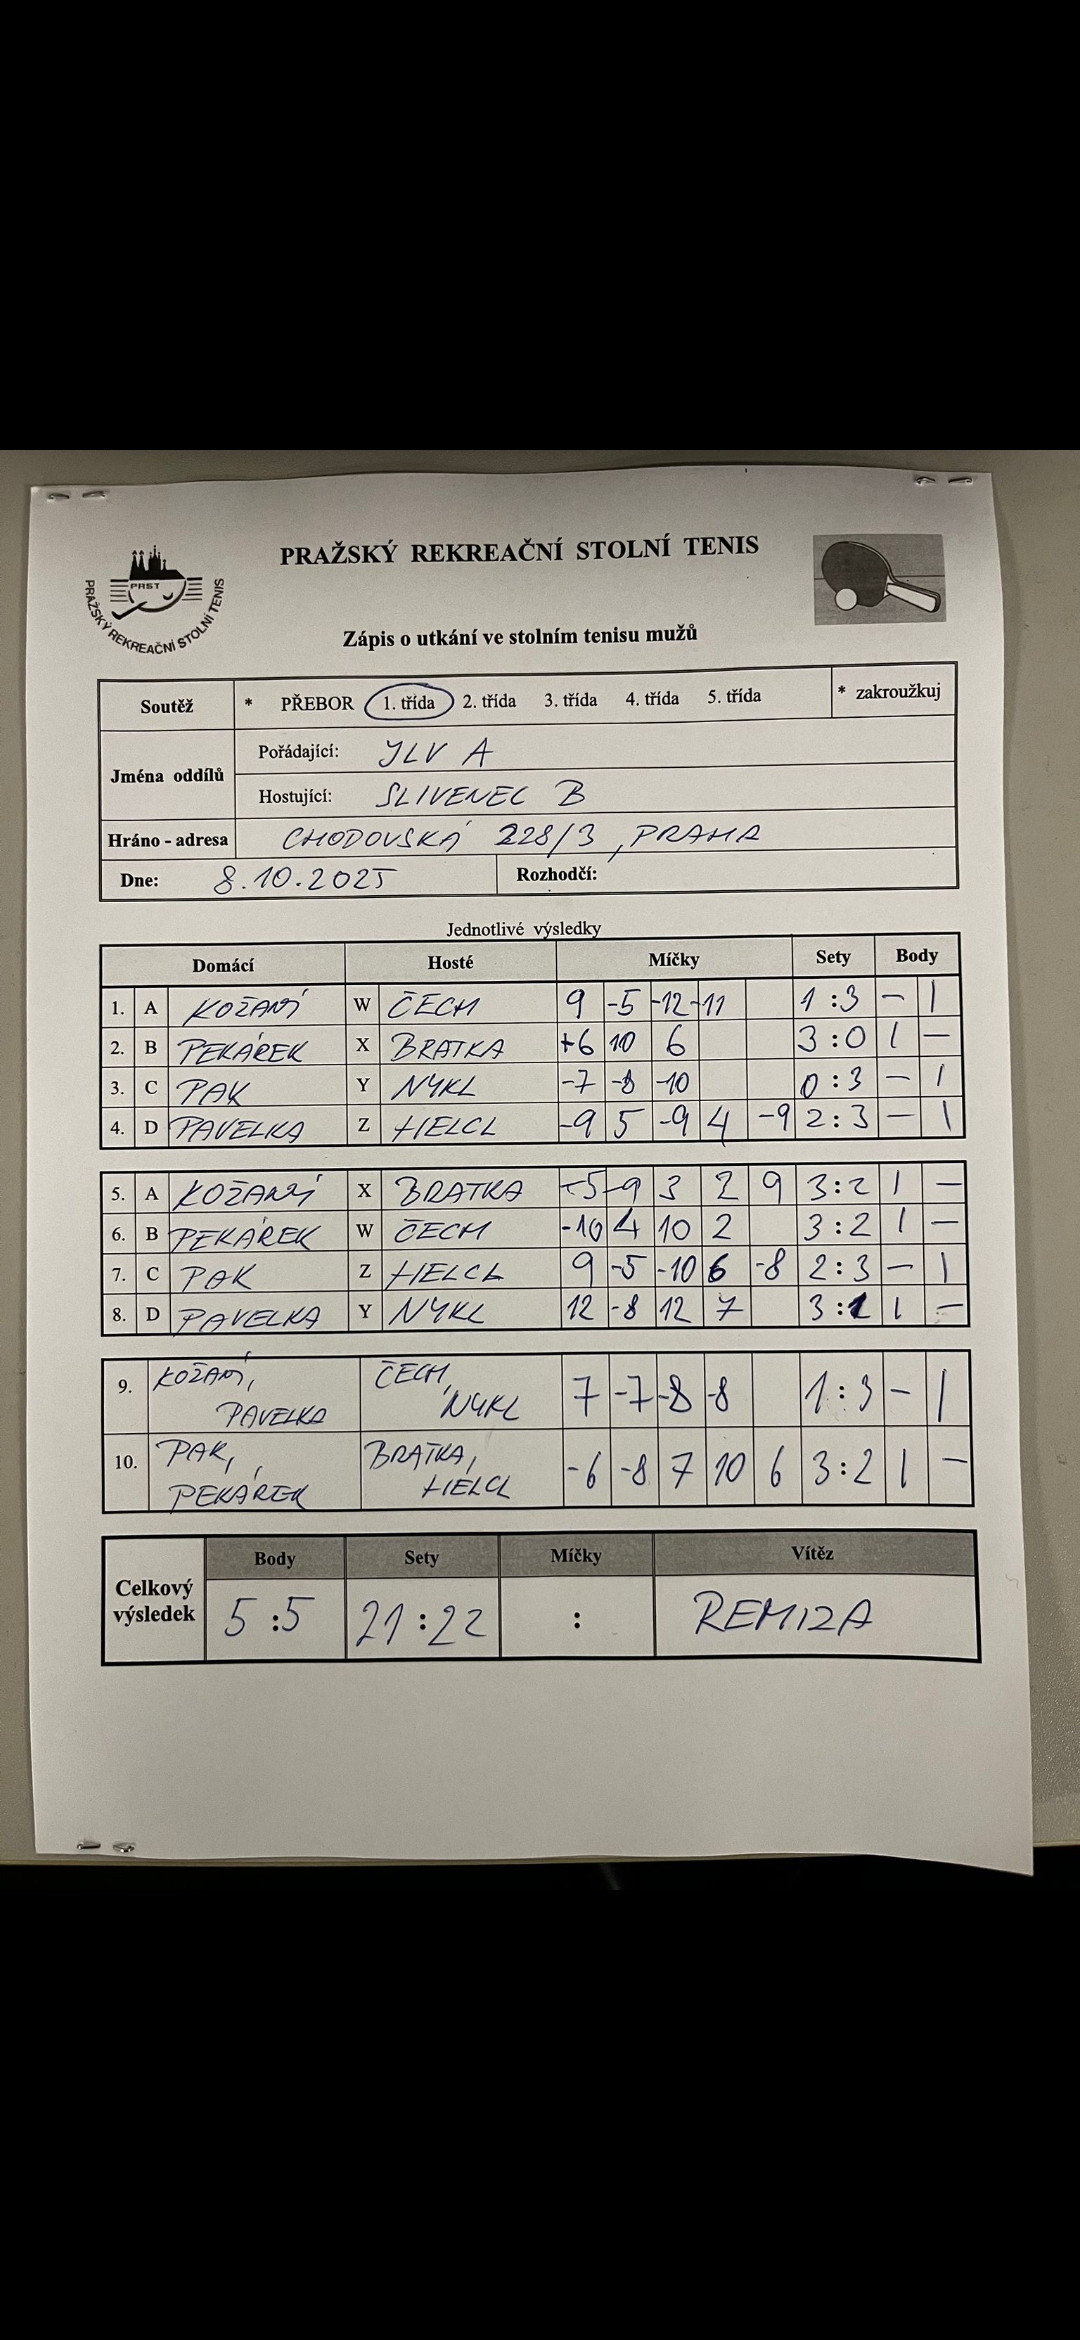 PRAŽSKÝ REKREAČNÍ STOLNÍ TENIS
PRST
PRAŽSKÝ REKREAČNÍ STOLNÍ TENIS
Zápis o utkání ve stolním tenisu mužů
Soutěž * PŘEBOR 1. třída 2. třída 3. třída 4. třída 5. třída * zakroužkuj
Jména oddílů
Pořádající: JLV A
Hostující: SLIVENEC B
Hráno - adresa CHODOVSKÁ 228/3, PRAHA
Dne: 8.10.2025 Rozhodčí:
Jednotlivé výsledky
Domácí Hosté Míčky Sety Body
1. A W ČECH 9 -5 -12 -11 1:3 – 1
2. B PEKÁREK X BRATKA +6 10 6 3:0 1 –
3. C PAK Y NYKL -7 -8 -10 0:3 – 1
4. D PAVELKA Z HELCL -9 5 -9 4 -9 2:3 – 1
5. A X BRATKA -5 -9 3 2 9 3:2 1 –
6. B PEKÁREK W ČECH -10 4 10 2 3:2 1 –
7. C PAK Z HELCL 9 -5 -10 6 -8 2:3 – 1
8. D PAVELKA Y NYKL 12 -8 12 7 3:1 1 –
9. PAVELKA ČECH, NYKL 7 -7 -8 -8 1:3 – 1
10. PAK, PEKÁREK BRATKA, HELCL -6 -8 7 10 6 3:2 1 –
Celkový výsledek
Body Sety Míčky Vítěz
5:5 21:22 : REMIZA